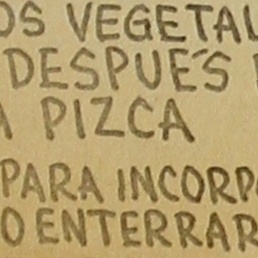 OS VEGETAL
DESPUÉS
A PIZCA
PARA INCORPO
O ENTERRAR